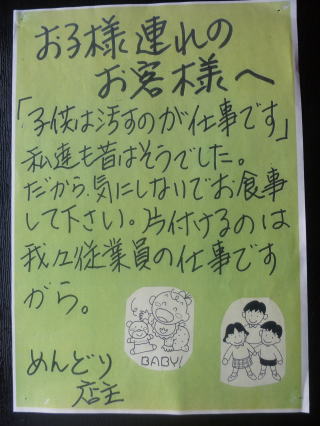 お子様連れの
お客様へ
「子供は汚すのが仕事です」
私達も昔はそうでした。
だから、気にしないでお食事
して下さい。片付けるのは
我々従業員の仕事です
から。
BABY!
めんどり
店主